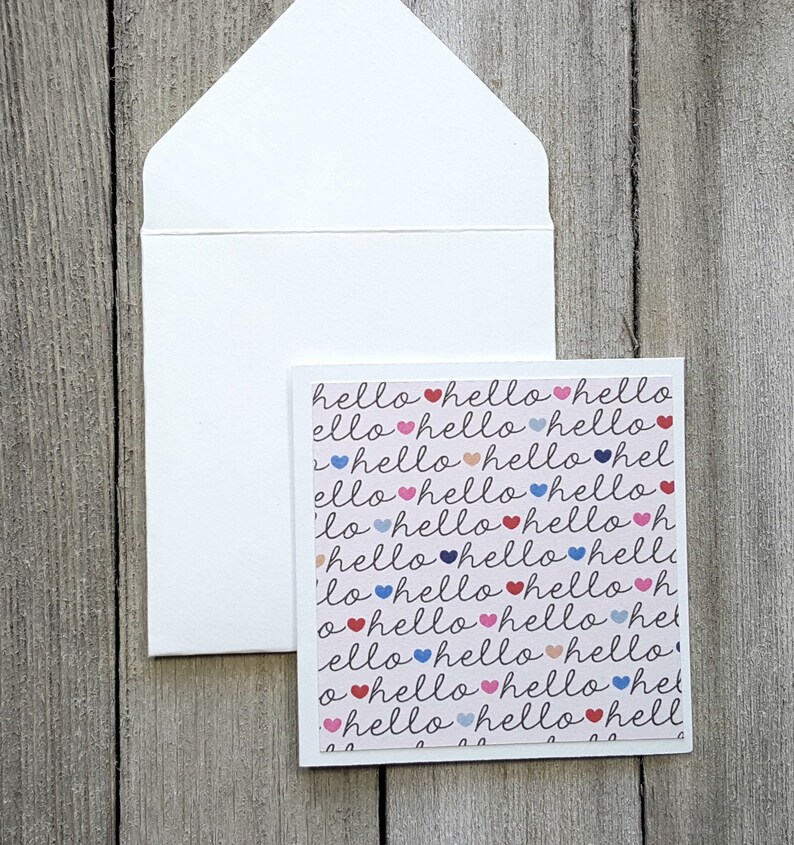 hello hello hello
ello hello hello
o hello hello hel
ello hello hello
lo hello hello h
hello hello hell
lo hello hello h
o hello hello h
ello hello hello
o hello hello hel
hello hello hell